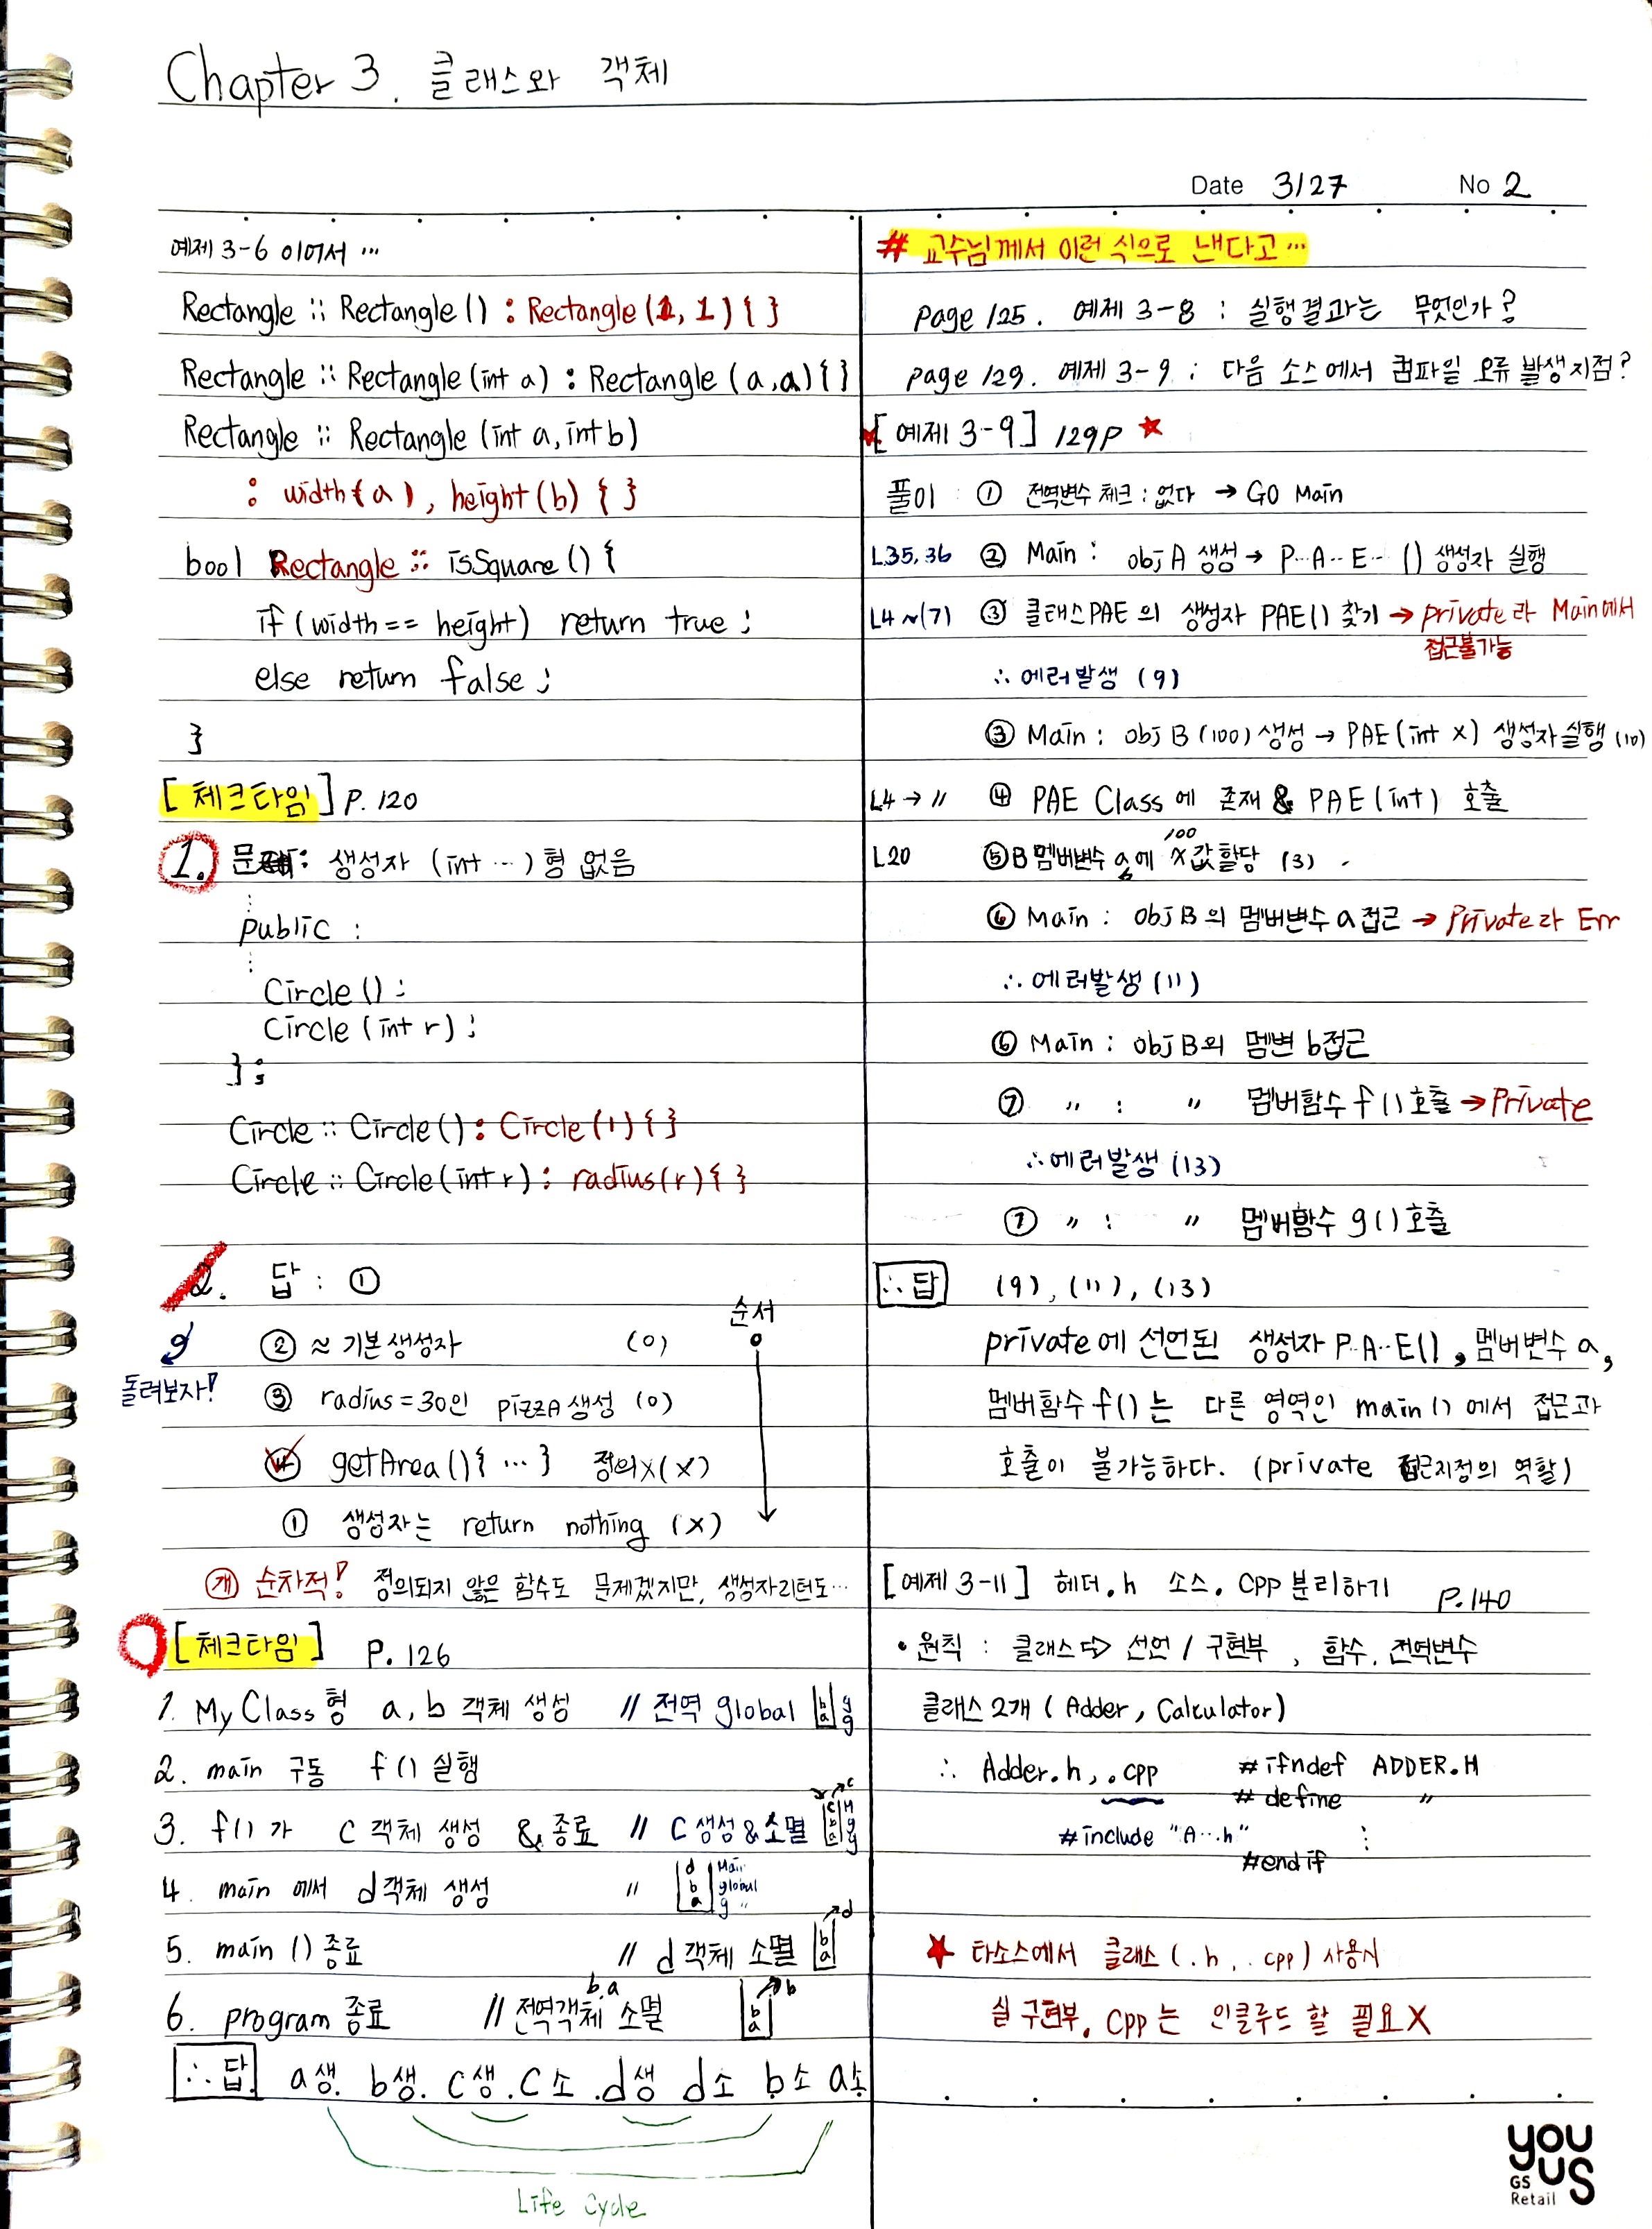 Chapter 3. 클래스와 객체
Date 3/27 No 2
예제 3-6 이어서 ...
Rectangle :: Rectangle () : Rectangle (1, 1) { }
Rectangle :: Rectangle (int a) : Rectangle (a, a) { }
Rectangle :: Rectangle (int a, int b)
: width(a), height(b) { }
bool Rectangle :: isSquare () {
if (width == height) return true ;
else return false ;
}
[체크타임] P. 120
1. 문제: 생성자 (int ...) 형 없음
public :
Circle () ;
Circle (int r) ;
} ;
Circle :: Circle () : Circle (1) { }
Circle :: Circle (int r) : radius(r) { }
2. 답 : ①
순서
② ≈ 기본생성자 (O)
돌려보자!
③ radius = 30인 pizzA 생성 (O)
④ getArea () { ... } 정의X (X)
① 생성자는 return nothing (X)
순차적! 정의되지 않은 함수도 문제겠지만, 생성자리턴도...
[체크타임] P. 126
1. MyClass형 a, b 객체 생성 // 전역 global b a g g
2. main 구동 f() 실행
3. f()가 C 객체 생성 & 종료 // C 생성&소멸 c b a
4. main 에서 d객체 생성 // d b a Main global g "
5. main () 종료 // d 객체 소멸 b a d
6. program 종료 // 전역객체 b, a 소멸 b a b
∴ 답. a생. b생. C생. C소. d생 d소 b소 a소
Life Cycle
# 교수님께서 이런 식으로 낸다고...
Page 125. 예제 3-8 : 실행결과는 무엇인가?
page 129. 예제 3-9 : 다음 소스에서 컴파일 오류 발생지점?
[예제 3-9] 129P ★
풀이 : ① 전역변수 체크 : 없다 → GO Main
L35, 36 ② Main : obj A 생성 → P..A..E.. () 생성자 실행
L4~(7) ③ 클래스PAE 의 생성자 PAE() 찾기 → private라 Main에서
접근불가능
∴ 에러발생 (9)
③ Main : obj B (100) 생성 → PAE (int x) 생성자실행 (10)
L4 → " ④ PAE Class 에 존재 & PAE (int) 호출
100
L20 ⑤ B 멤버변수 a에 x값 할당 (3)
⑥ Main : obj B의 멤버변수 a 접근 → Private라 Err
∴ 에러발생 (11)
⑥ Main : obj B의 멤변 b접근
⑦ " : " 멤버함수 f () 호출 → Private
∴ 에러발생 (13)
⑦ " : " 멤버함수 g () 호출
∴ 답 (9), (11), (13)
private에 선언된 생성자 P..A..E(), 멤버변수 a,
멤버함수 f()는 다른 영역인 main () 에서 접근과
호출이 불가능하다. (private 접근지정의 역할)
[예제 3-11] 헤더.h 소스.cpp 분리하기 P.140
• 원칙 : 클래스 ⇨ 선언 / 구현부, 함수. 전역변수
클래스 2개 (Adder, Calculator)
∴ Adder.h, .cpp #ifndef ADDER.H
# define "
#include "A...h"
#endif
★ 타소스에서 클래스 (.h, .cpp) 사용시
실 구현부.cpp는 인클루드 할 필요X
you us
GS Retail